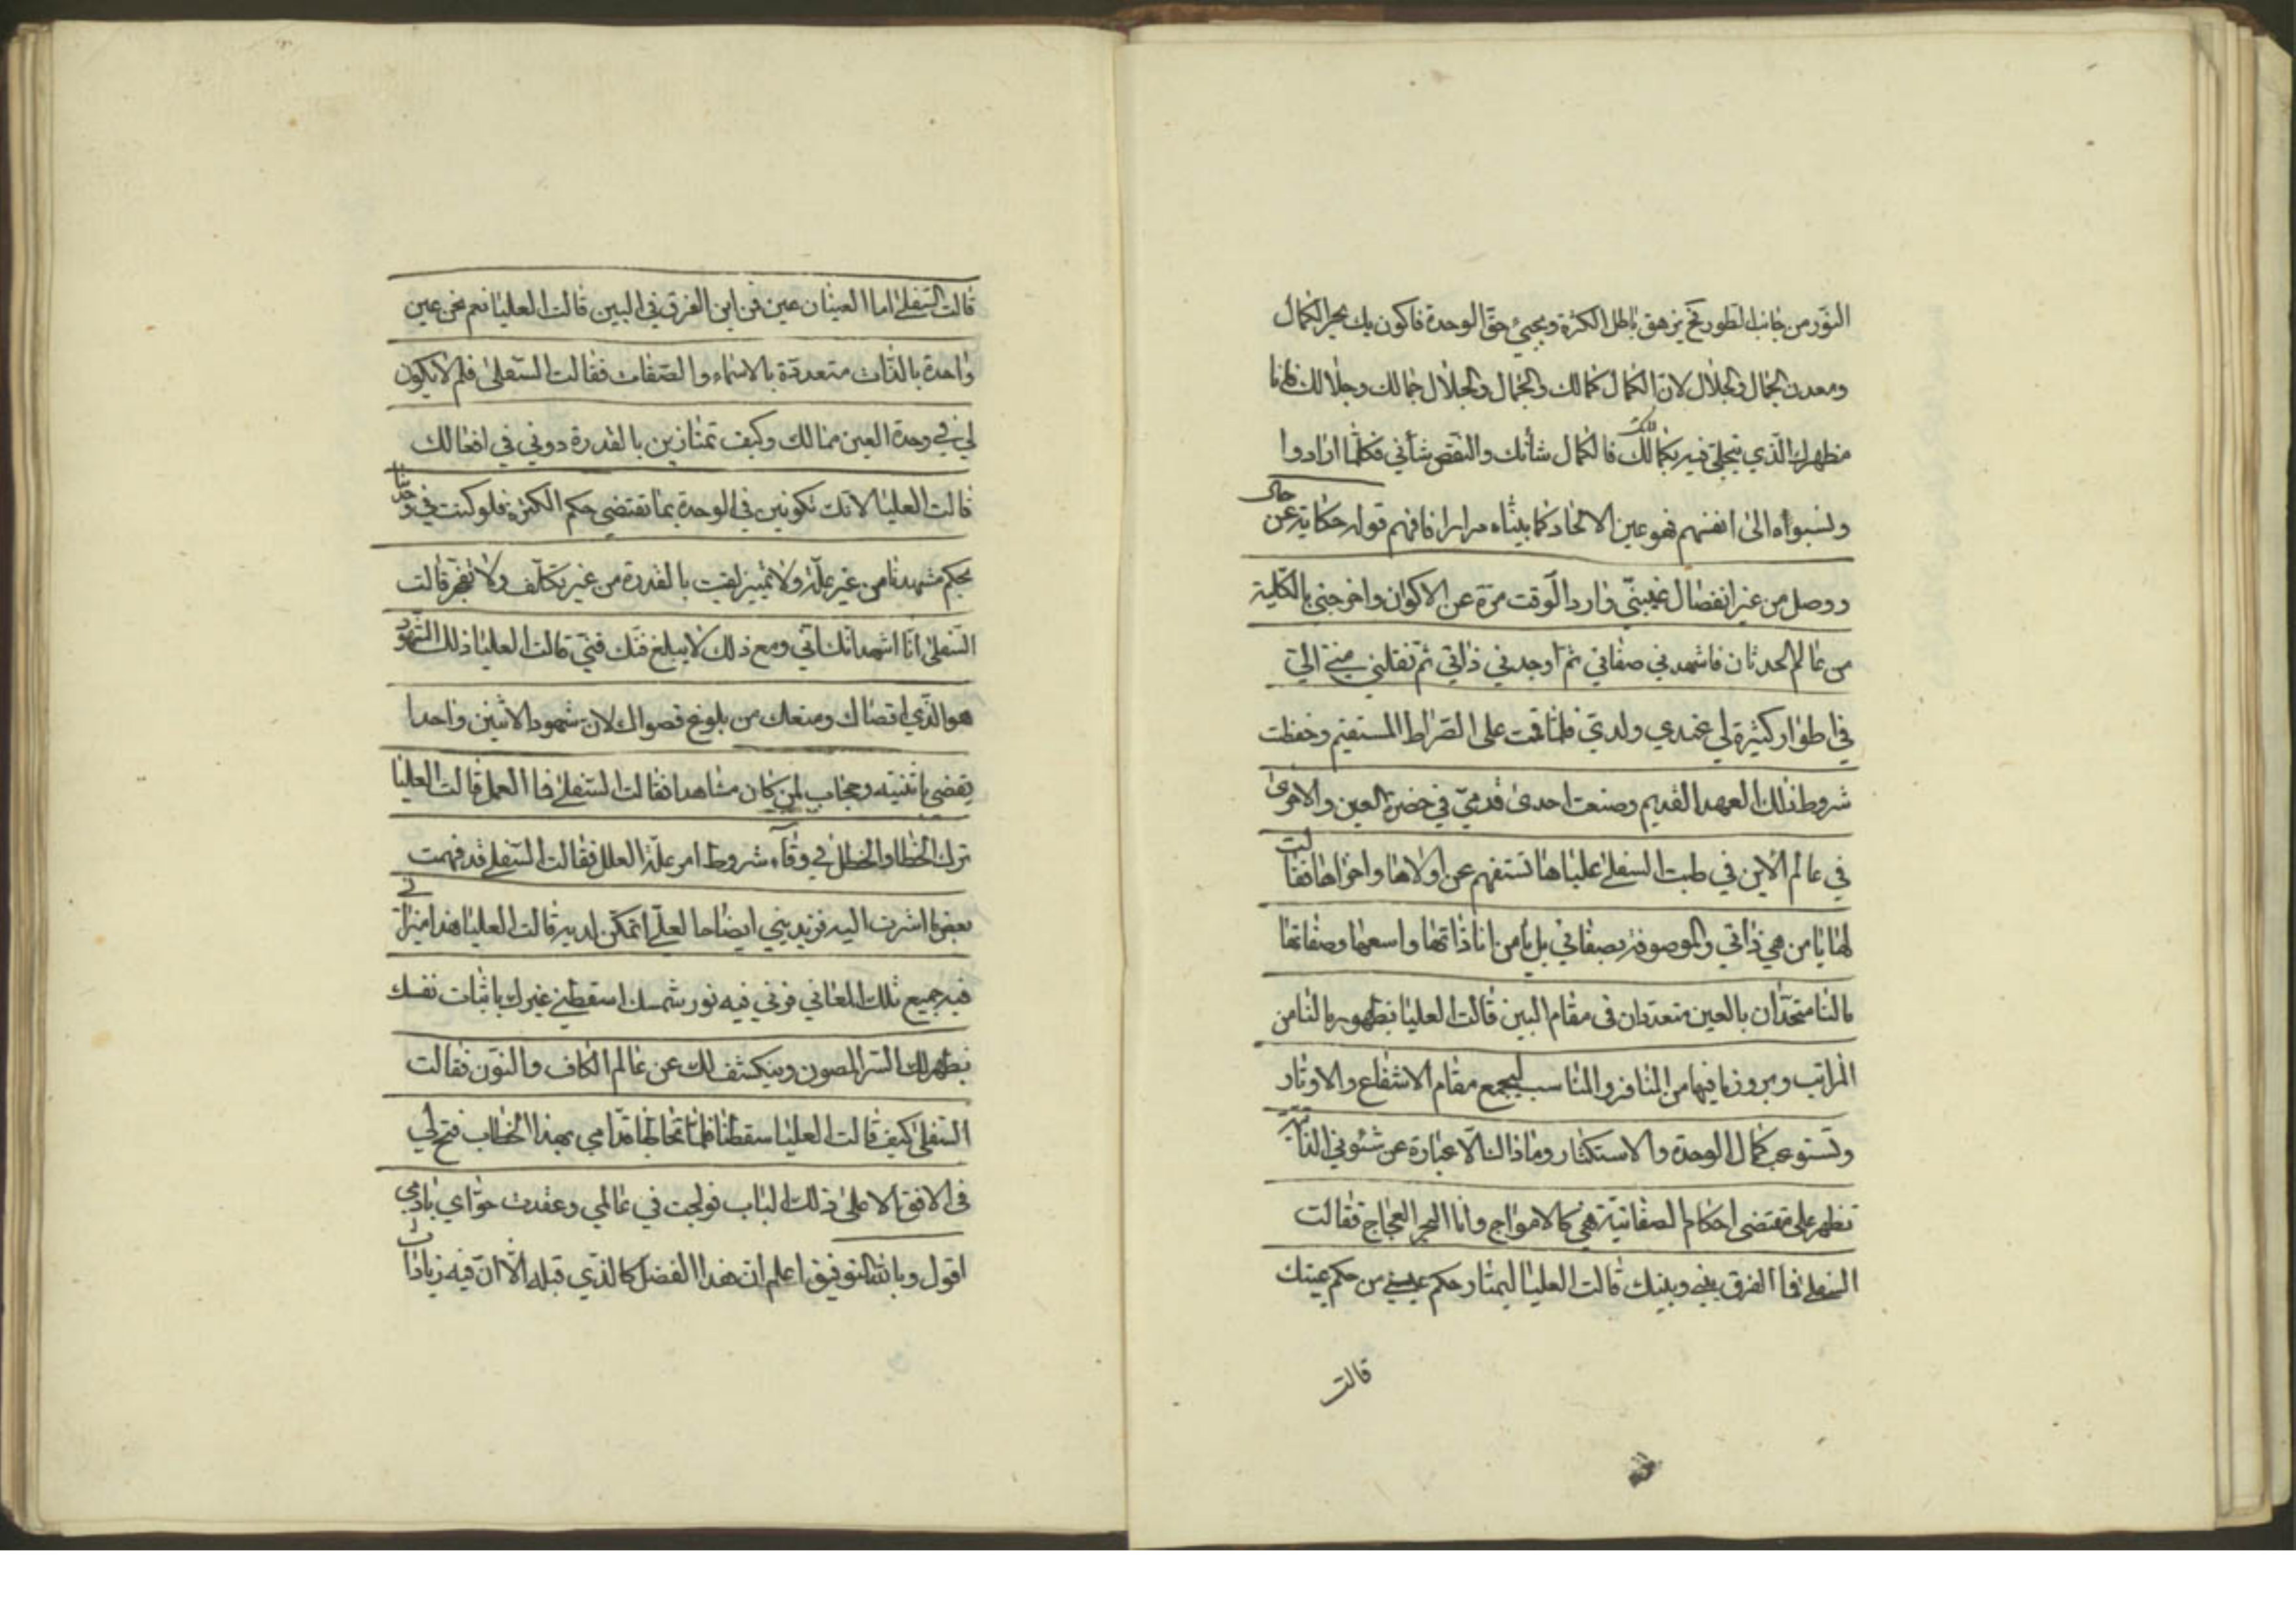 النور من جانب الطور تح يزهق باطل الكثرة ويجيئ حق الوحدة فاكون بك بحر الكمال
ومعدن الجمال والجلال لان الكمال كمالك والجمال والجلال جمالك وجلالك فانا
مظهرك الذي تتجلى فيه بكمالك فالكمال شأنك والنقص شأني فكلما ارادوا
ونسبواه الى انفسهم فهو عين الالحاد كما بيناه مرارا فافهم قوله حكاية عن حال
ووصل من غير انفصال غيبني وارد الوقت مرة عن الاكوان واخرجني بالكلية
من عالم الحدثان فاشهدني صفاتي ثم اوجدني ذاتي ثم نقلني مني الي
في اطوار كثيرة لي عندي ولدي فلما قمت على الصراط المستقيم وحفظت
شروط ذلك العهد القديم وضعت احدى قدمي في حضرة العين والاخرى
في عالم الاين في طبت السفلى علياها تستفهم عن اولاها واخراها فقالت
لها يا من هي ذاتي والموصوفة بصفاتي بل يا من انا ذاتها واسمها وصفاتها
مالنا متحدان بالعين متعددان في مقام البين قالت العليا بظهور مالنا من
المراتب وبروز ما فيها من المنافر والمناسب ليجمع مقام الاشفاع والاوتار
وتستوعب كمال الوحدة والاستكثار وماذاك الا عبارة عن شئوني الذاتية
تظهر على مقتضى احكام الصفاتية هي كالامواج وانا البحر العجاج فقالت
السفلى فما الفرق بيني وبينك قالت العليا ليمتاز حكم عيني من حكم عينك
قالت
قالت السفلى اما العينان عين فمن اين الفرق في البين قالت العليا نعم نحن عين
واحدة بالذات متعددة بالاسماء والصفات فقالت السفلى فلم لا يكون
لي في وحدة العين ممالك وكيف تمتازين بالقدرة دوني في افعالك
قالت العليا لانك تكونين في الوحدة بما تقتضي حكم الكثرة فلو كنت في وحدتنا
بحكم مشهدنا من غير علة ولا تمييز لقيت بالقدرة من غير تكلف ولا تعجز قالت
السفلى انا اشهد انك اني ومع ذلك لا يبلغ فنك فني قالت العليا ذلك الشهود
هو الذي اقصاك ومنعك من بلوغ قصواك لان شهود الاثنين واحدا
يقضي باثنينيه وحجاب لمن كان مشاهدا فقالت السفلى فما العمل قالت العليا
ترك الخطا والخطل في وفاء شروط امر علة العلل فقالت السفلى قد فهمت
بعض ما اشرت اليه فزيديني ايضاحا لعلي اتمكن لديه قالت العليا هذا ميزان
فيه جميع تلك المعاني فزني فيه نور شمسك اسقطي غيرك باثبات نفسك
يظهر لك السر المصون وينكشف لك عن عالم الكاف والنون فقالت
السفلى كيف قالت العليا اسقطنا فلما قدامي بهذا الخطاب فتح لي
في الافق الاعلى ذلك الباب فولجت في عالمي وعقدت حواي بادمي
اقول وبالله التوفيق اعلم ان هذا الفصل كالذي قبله الا ان فيه زيادات